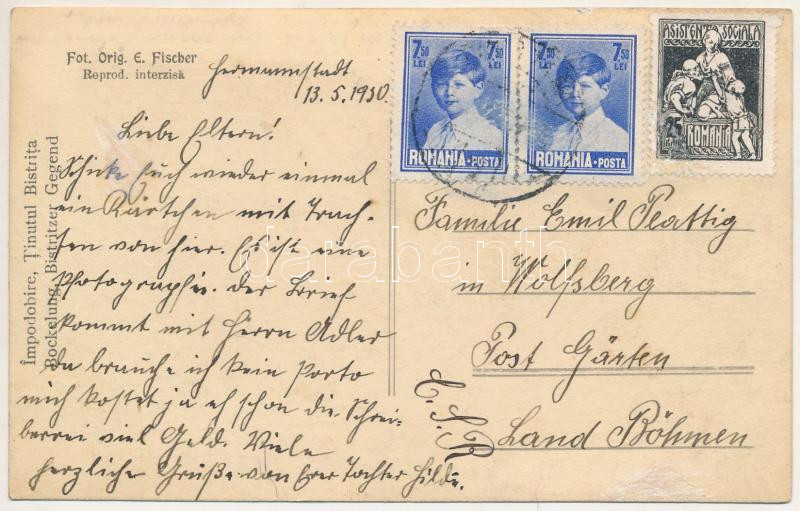 Fot. Orig. E. Fischer
Reprod. interzisă
Hermannstadt
13.5.1930.
Liebe Eltern!
Schicke Euch wieder einmal
ein Kärtchen mit Trach-
ten von hier. Es ist eine
Photographie. Der Brief
kommt mit Herrn Adler
da brauche ich kein Porto
mich kostet ja eh schon die Schrei-
berei viel Geld. Viele
herzliche Grüße von Eurer Tochter Hilde.
Împodobire, Ținutul Bistrița
Bockelung, Bistritzer Gegend
7.50 LEI
7.50 LEI
ROMANIA·POSTA
7.50 LEI
7.50 LEI
ROMANIA·POSTA
ASISTENȚA SOCIALA
25
ROMANIA
Familie Emil Plattig
in Wolfsberg
Post Gärten
Land Böhmen
C.S.R.
darabanth